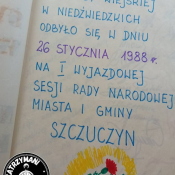 WIEJSKIEJ
W NIEDŹWIEDZKICH
ODBYŁO SIĘ W DNIU
26 STYCZNIA 1988 r.
NA I WYJAZDOWEJ
SESJI RADY NARODOWEJ
MIASTA I GMINY
SZCZUCZYN
ATRZYMANI